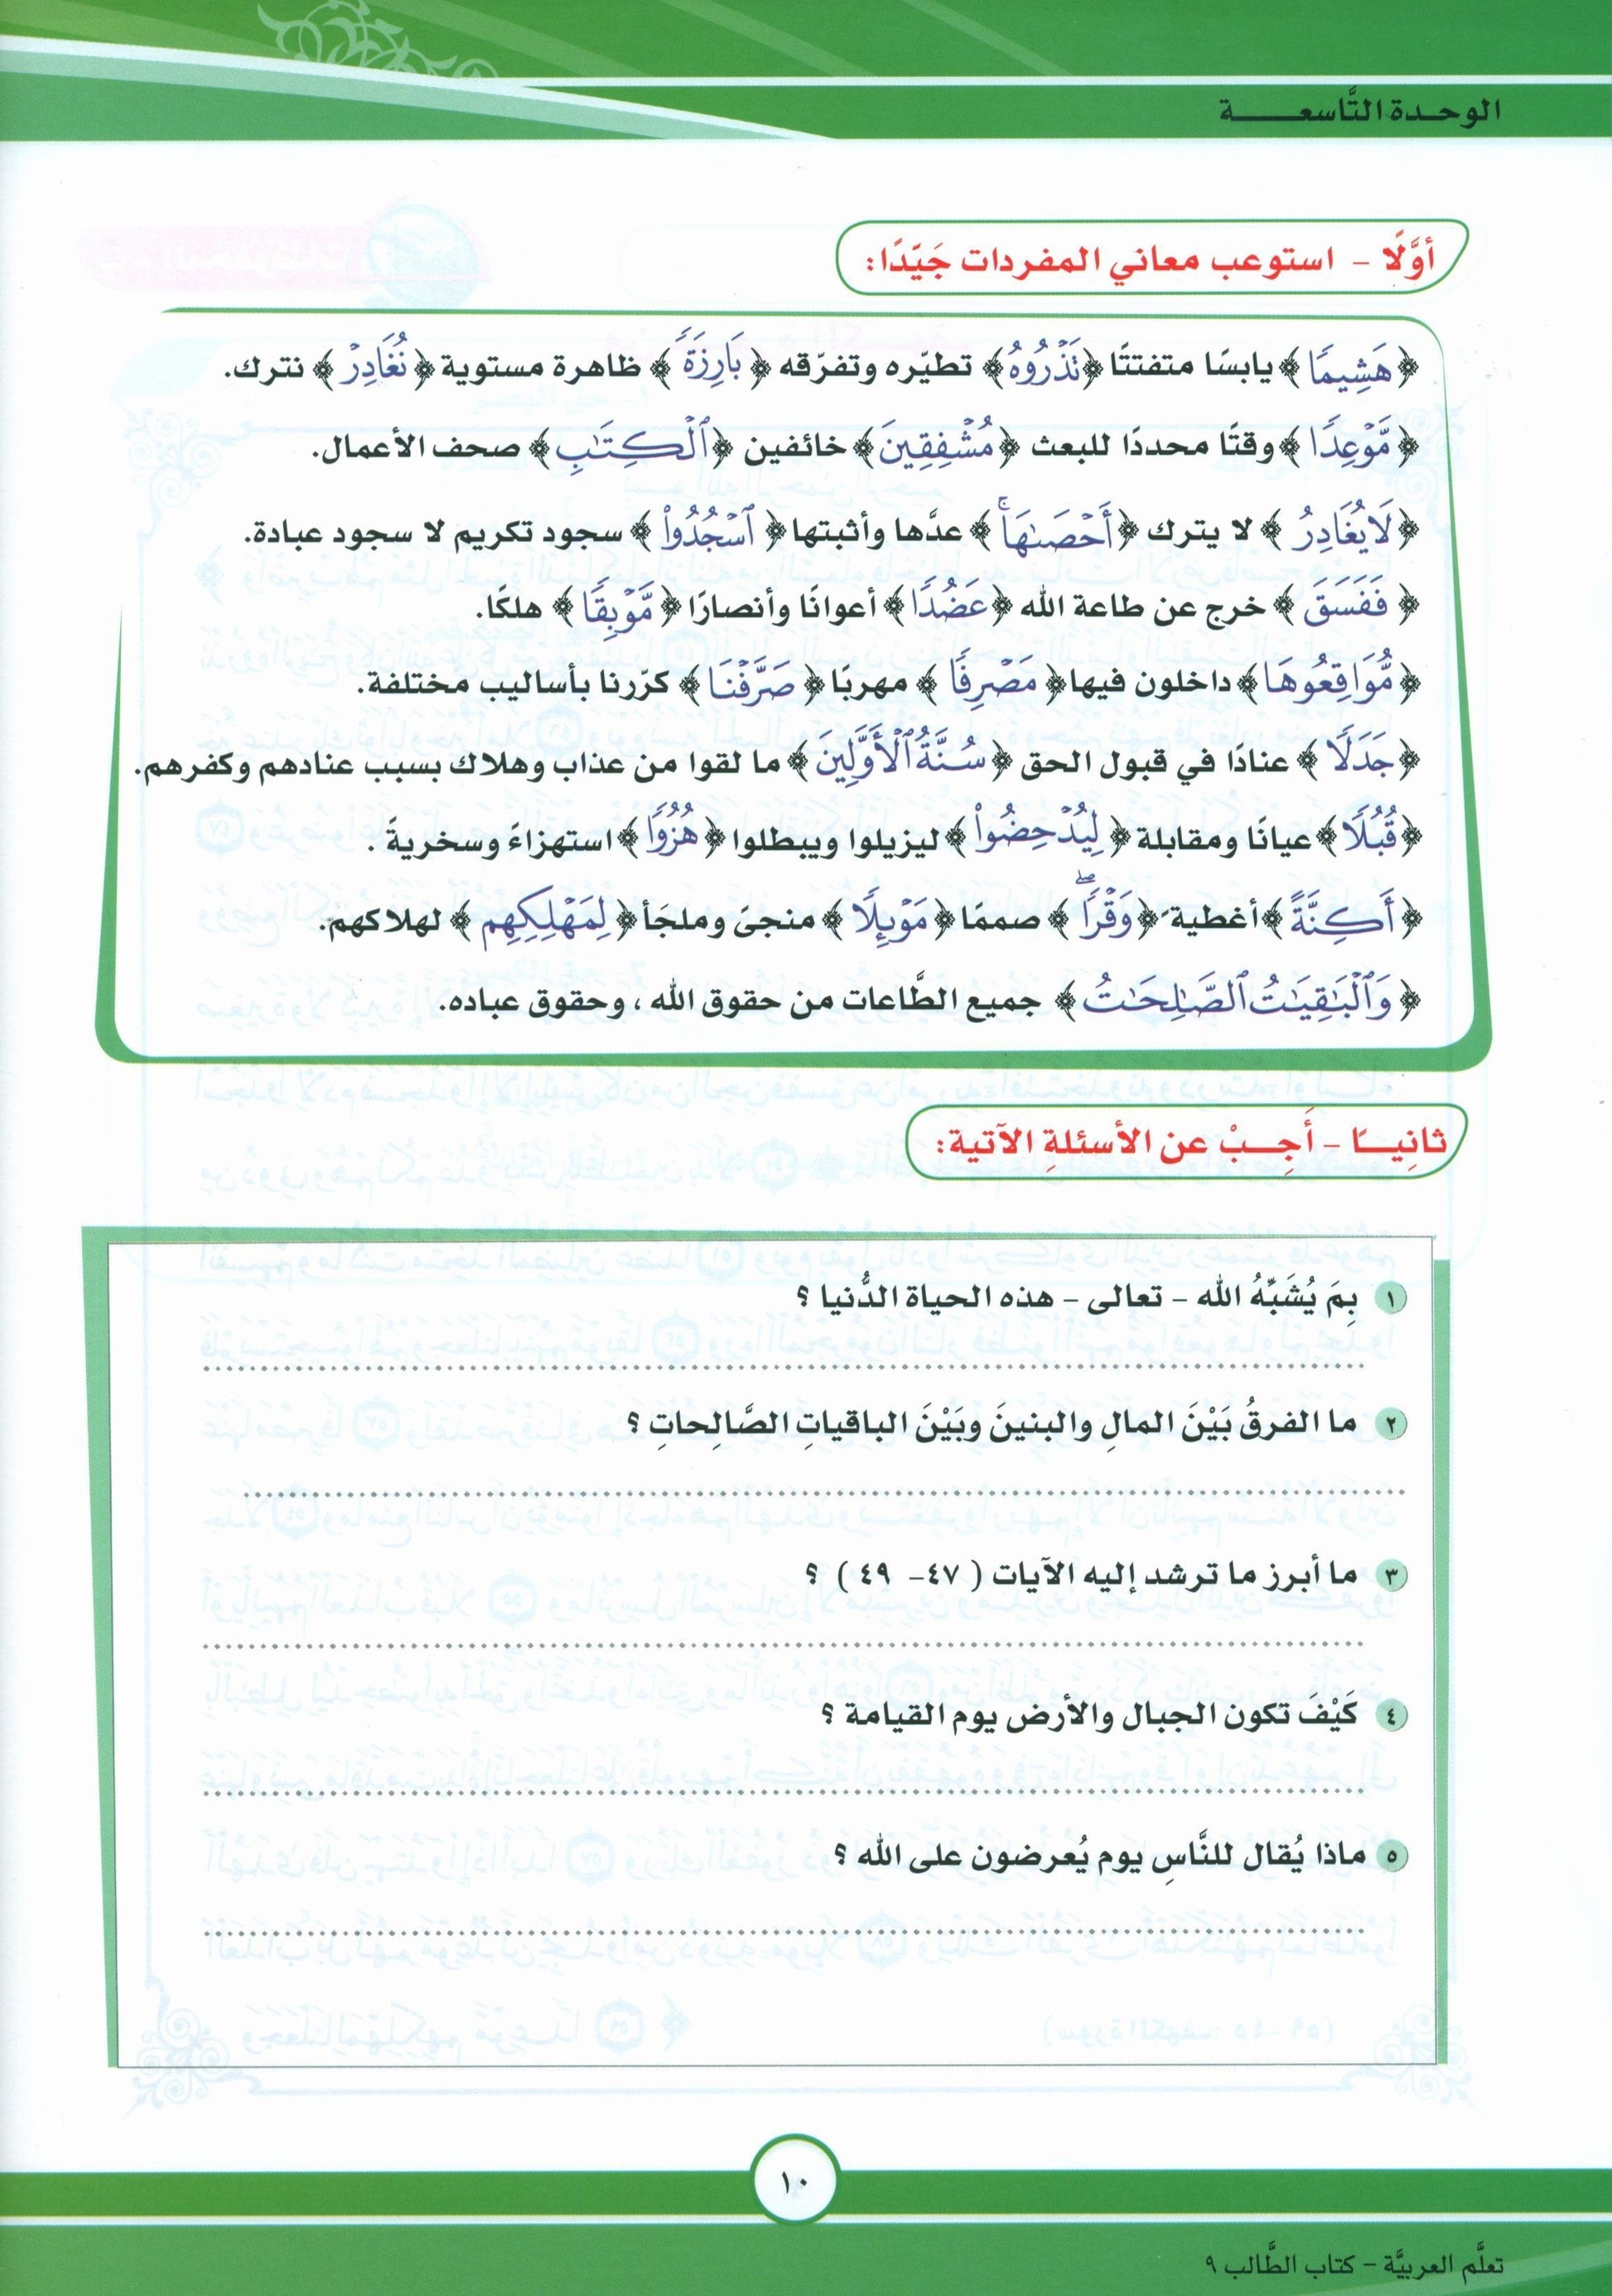 الوحدة التَّاسعة
أوَّلًا - استوعب معاني المفردات جَيّدًا:
﴿هَشِيمًا﴾ يابسًا متفتتًا ﴿نَذْرُوهُ﴾ تطيّره وتفرّقه ﴿بَارِزَةً﴾ ظاهرة مستوية ﴿نُغَادِرْ﴾ نترك.
﴿مَّوْعِدًا﴾ وقتًا محددًا للبعث ﴿مُشْفِقِينَ﴾ خائفين ﴿ٱلْكِتَٰبِ﴾ صحف الأعمال.
﴿لَا يُغَادِرُ﴾ لا يترك ﴿أَحْصَىٰهَا ۚ﴾ عدَّها وأثبتها ﴿ٱسْجُدُوا۟﴾ سجود تكريم لا سجود عبادة.
﴿فَفَسَقَ﴾ خرج عن طاعة الله ﴿عَضُدًا﴾ أعوانًا وأنصارًا ﴿مَّوْبِقًا﴾ هلكًا.
﴿مُّوَاقِعُوهَا﴾ داخلون فيها ﴿مَصْرِفًا﴾ مهربًا ﴿صَرَّفْنَا﴾ كرّرنا بأساليب مختلفة.
﴿جَدَلًا﴾ عنادًا في قبول الحق ﴿سُنَّةُ ٱلْأَوَّلِينَ﴾ ما لقوا من عذاب وهلاك بسبب عنادهم وكفرهم.
﴿قُبُلًا﴾ عيانًا ومقابلة ﴿لِيُدْحِضُوا۟﴾ ليزيلوا ويبطلوا ﴿هُزُوًا﴾ استهزاءً وسخريةً.
﴿أَكِنَّةً﴾ أغطية ﴿وَقْرًا ۖ﴾ صممًا ﴿مَوْئِلًا﴾ منجىً وملجَأ ﴿لِمَهْلِكِهِم﴾ لهلاكهم.
﴿وَٱلْبَٰقِيَٰتُ ٱلصَّٰلِحَٰتُ﴾ جميع الطَّاعات من حقوق الله ، وحقوق عباده.
ثانِيًا - أَجِبْ عن الأسئلةِ الآتية:
١ بِمَ يُشَبِّهُ الله - تعالى - هذه الحياة الدُّنيا ؟
٢ ما الفرقُ بَيْنَ المالِ والبنينَ وبَيْنَ الباقياتِ الصَّالِحاتِ ؟
٣ ما أبرز ما ترشد إليه الآيات ( ٤٧ - ٤٩ ) ؟
٤ كَيْفَ تكون الجبال والأرض يوم القيامة ؟
٥ ماذا يُقال للنَّاسِ يوم يُعرضون على الله ؟
١٠
تعلَّم العربيَّة - كتاب الطَّالب ٩